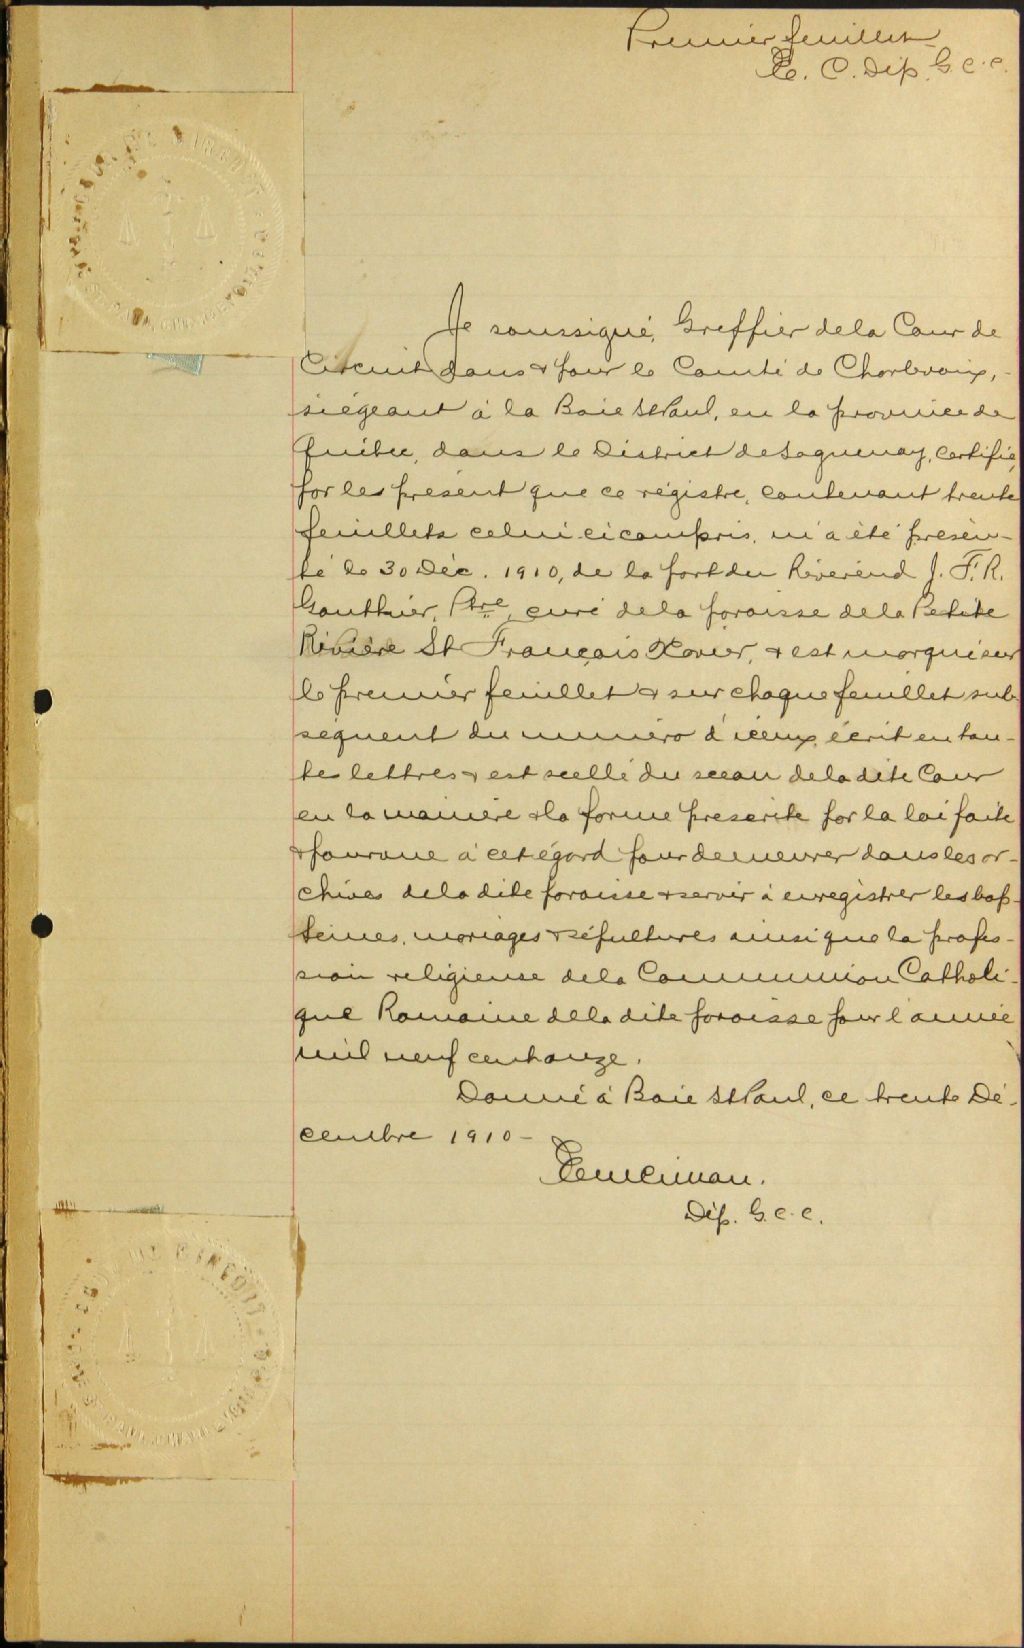 Premier feuillet
E. C. Dép. G. C. C.
Je soussigné, Greffier de la Cour de
Circuit dans & pour le Comté de Charlevoix,
siégeant à la Baie St Paul, en la province de
Québec, dans le District de Saguenay, certifie,
par les présent que ce régistre, contenant trente
feuillets celui-ci compris, m'a été présen-
té le 30 Déc. 1910, de la part du Révérend J. F. R.
Gauthier, Ptre, curé de la paroisse de la Petite
Rivière St François Xavier, & est marqué sur
le premier feuillet & sur chaque feuillet sub-
séquent du numéro d'iceux, écrit en tou-
tes lettres & est scellé du sceau de la dite Cour
en la manière & la forme prescrite par la loi faite
& pourvue à cet égard pour demeurer dans les ar-
chives de la dite paroisse & servir à enregistrer les bap-
têmes, mariages & sépultures ainsi que la profes-
sion religieuse de la Communion Catholi-
que Romaine de la dite paroisse pour l'année
mil neuf cent onze.
Donné à Baie St Paul, ce trente Dé-
cembre 1910 -
Dép. G. C. C.
COUR DE CIRCUIT
COUR DE CIRCUIT